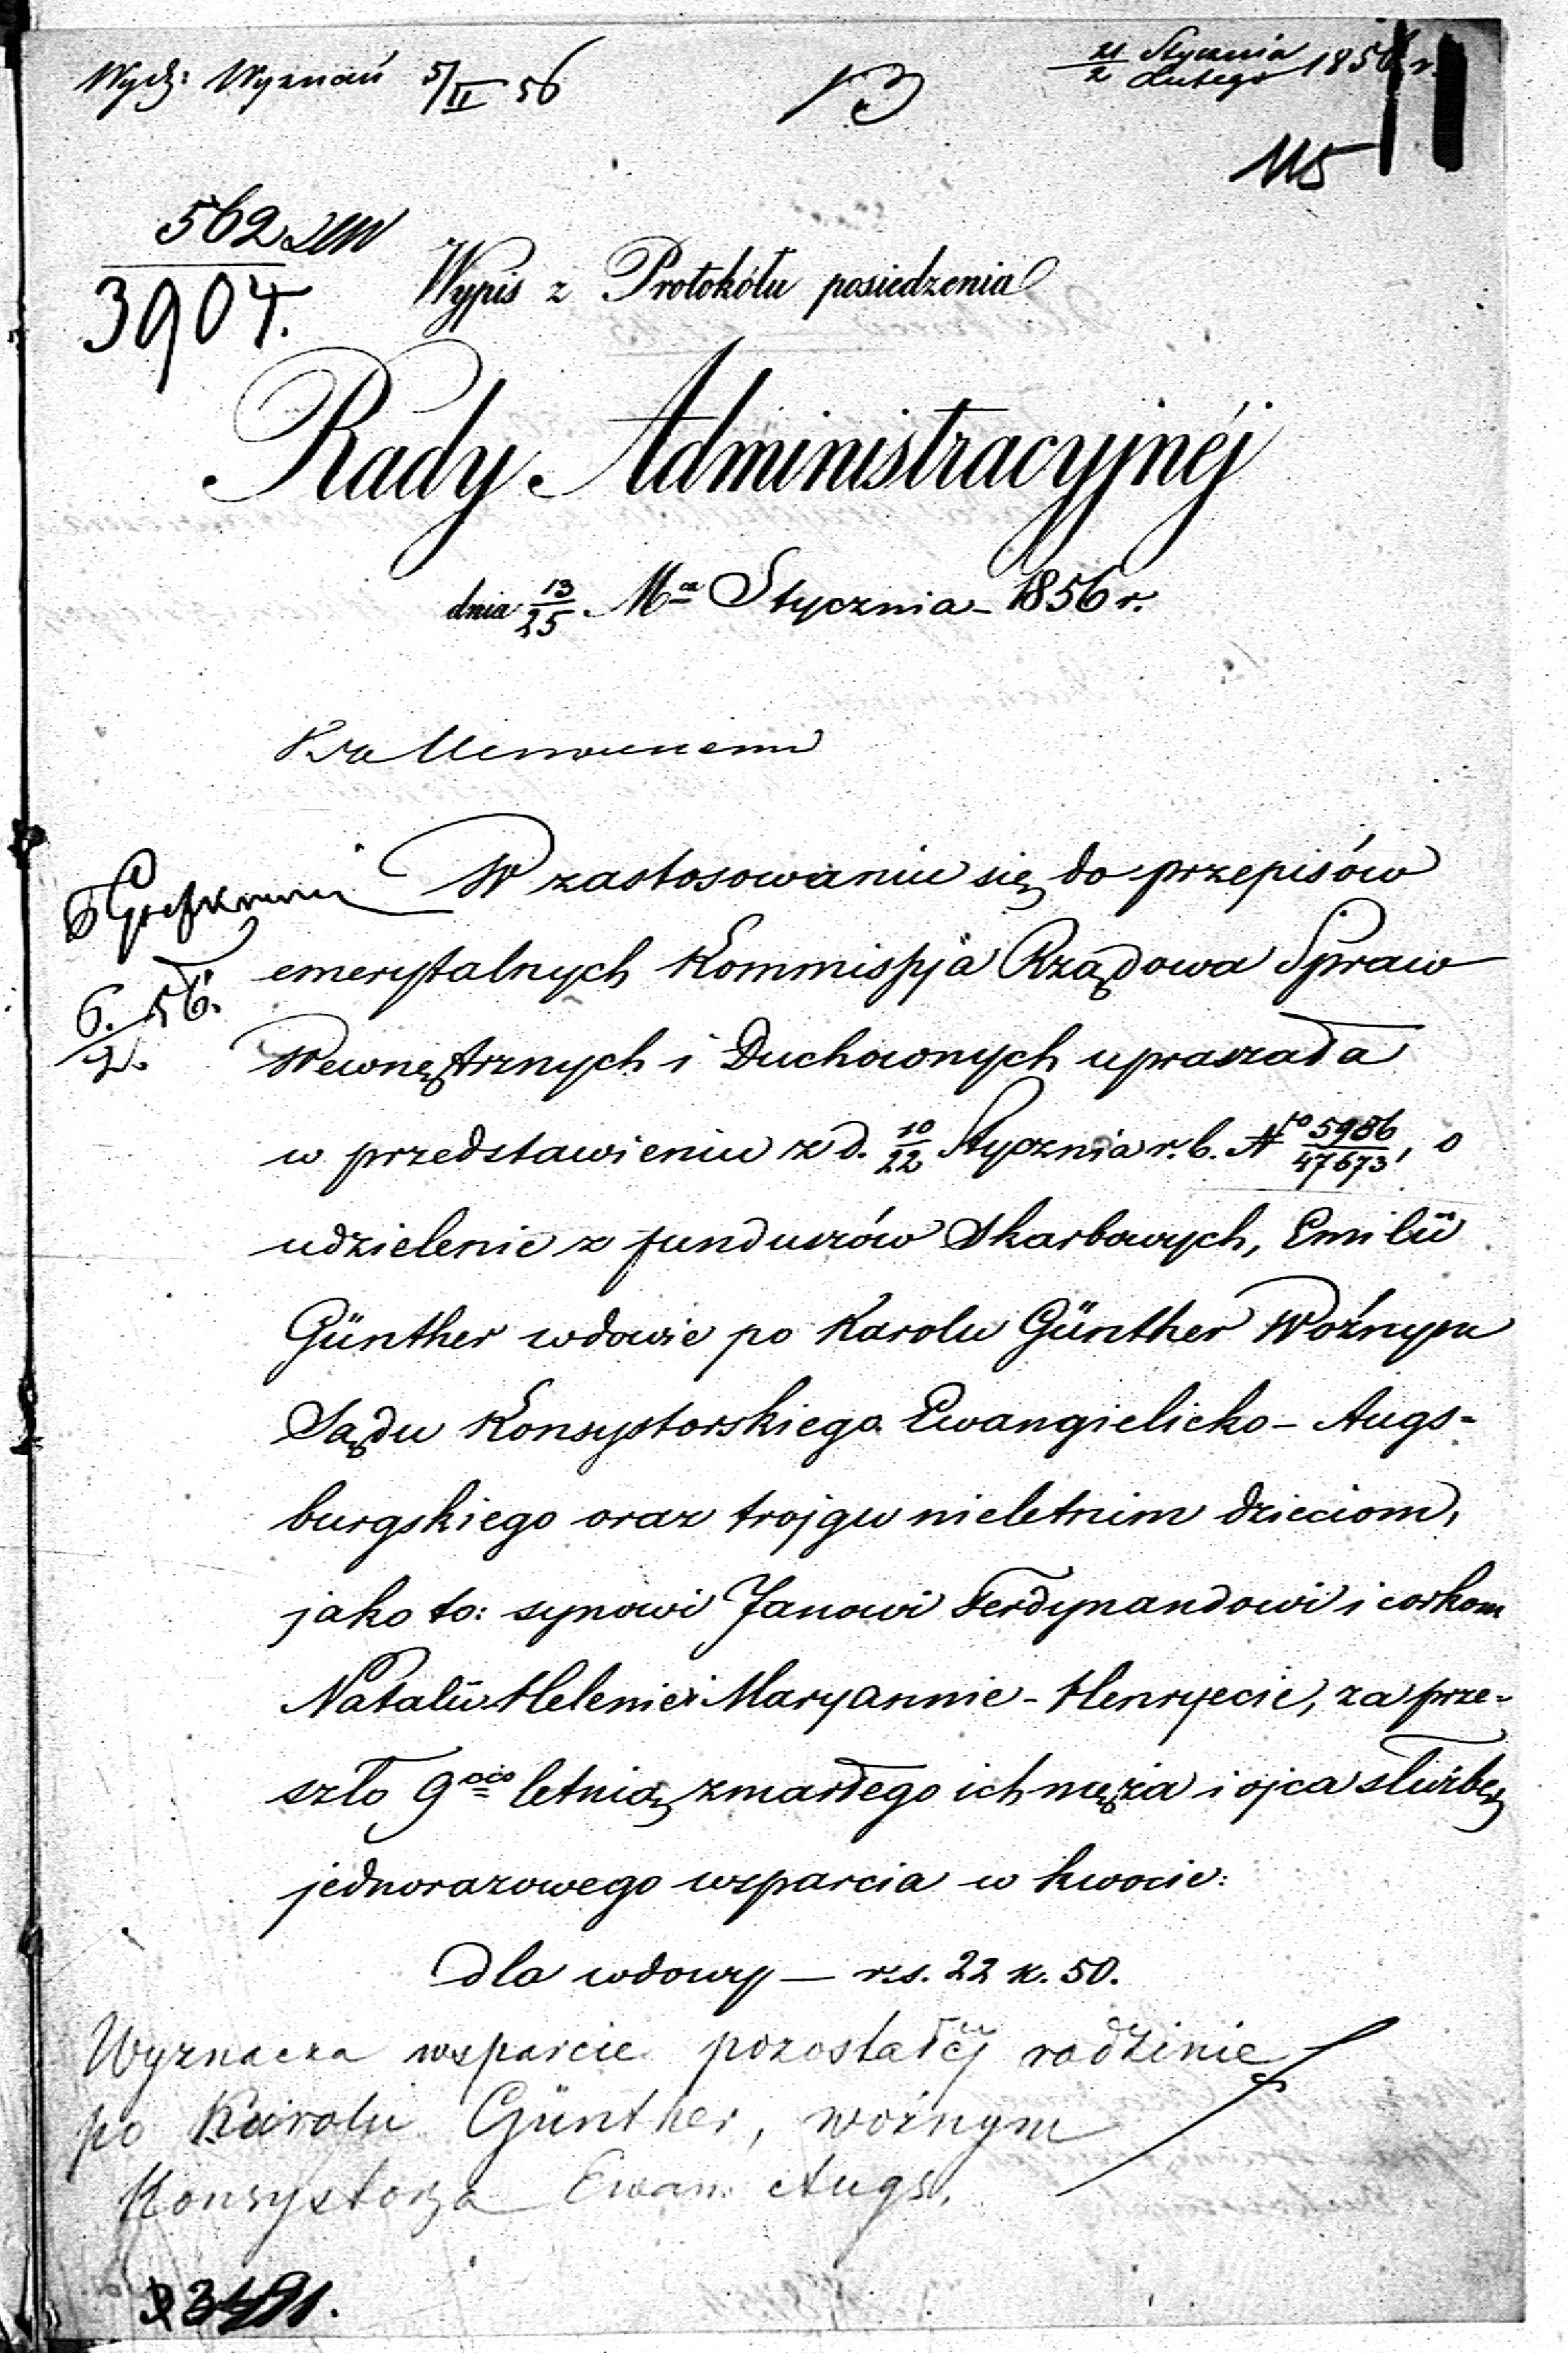 Wydz: Wyznań 5/II 56
13
21/2 Stycznia Lutego 1856 r.
115
562
3904.
Wypis z Protokółu posiedzenia
Rady Administracyjnéj
dnia 13/25 Mca Stycznia 1856 r.
W zastosowaniu się do przepisów
6/2. 56.
emerytalnych Kommissyja Rządowa Spraw
Wewnętrznych i Duchownych upraszała
w przedstawieniu z d. 10/22 Stycznia r. b. No 5986/47673, o
udzielenie z funduszów Skarbowych, Emilii
Günther wdowie po Karolu Günther Woźnym
Sądu Konsystorskiego Ewangielicko-Augs=
burgskiego oraz trojgu nieletnim dzieciom,
jako to: synowi Janowi Ferdynandowi i corkom
Natalii Helenie i Maryannie-Henryecie, za prze=
szło 9cio letnią zmarłego ich męża i ojca służbę,
jednorazowego wsparcia w kwocie:
dla wdowy — rs. 22 k. 50.
Wyznacza wsparcie pozostałéj rodzinie
po Karolu Günther, woźnym
Konsystorza Ewan. Augs.